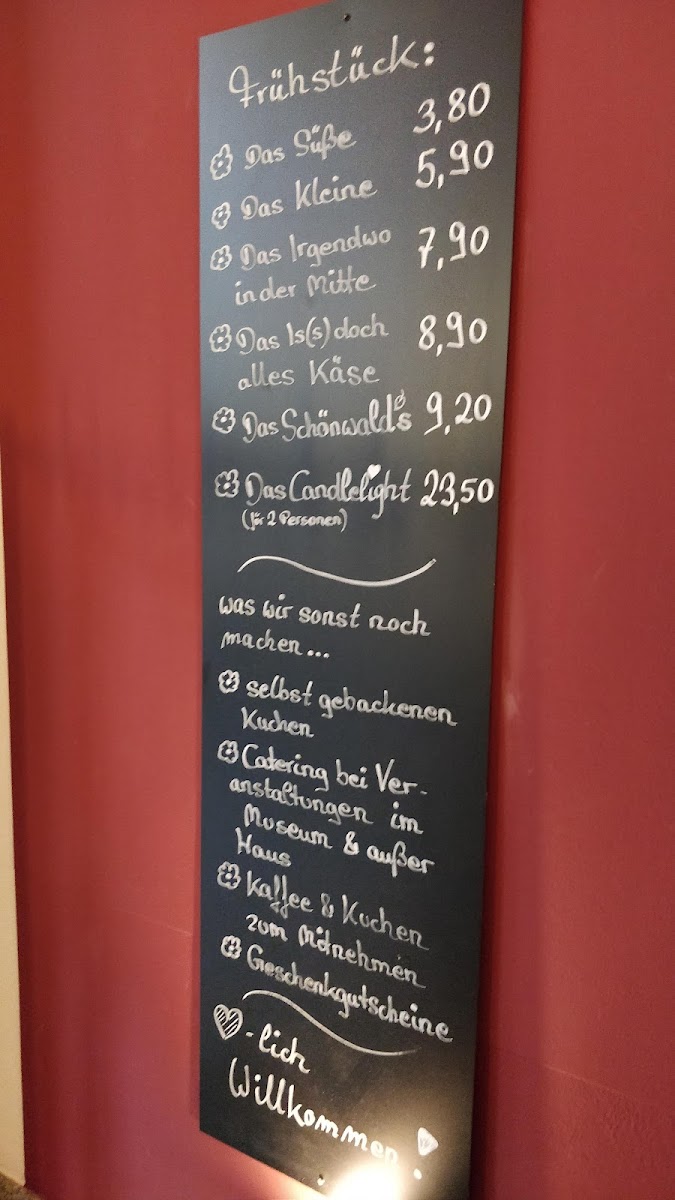 Frühstück:
Das Süße 3,80
Das Kleine 5,90
Das Irgendwo 7,90
in der Mitte
Das Is(s) doch 8,90
alles Käse
Das Schönwald's 9,20
Das Candlelight 23,50
(für 2 Personen)
was wir sonst noch
machen...
selbst gebackenen
Kuchen
Catering bei Ver-
anstaltungen im
Museum & außer
Haus
Kaffee & Kuchen
zum Mitnehmen
Geschenkgutscheine
-lich
Willkommen!